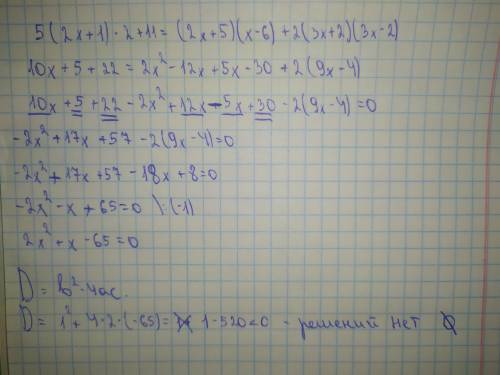 5(2x+1)·2+11=(2x+5)(x-6)+2(3x+2)(3x-2)
10x+5+22=2x²-12x+5x-30+2(9x-4)
10x+5+22-2x²+12x-5x+30-2(9x-4)=0
-2x²+17x+57-2(9x-4)=0
-2x²+17x+57-18x+8=0
-2x²-x+65=0 \·(-1)
2x²+x-65=0
D=b²-4ac.
D=1²+4·2·(-65)= 1-520<0 - решений нет ∅